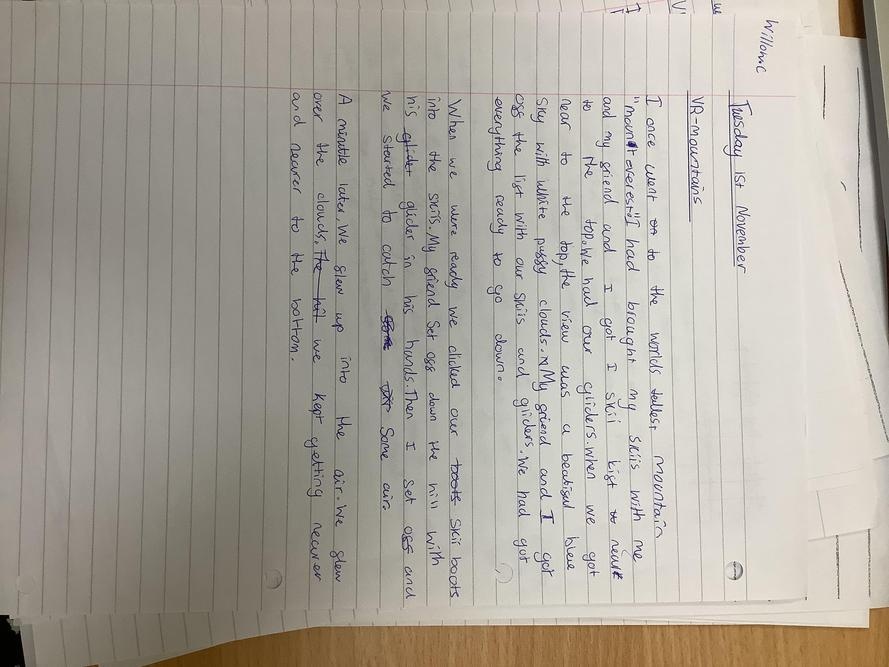 Willow C
Tuesday 1st November
VR-mountains
I once went to the worlds tallest mountain
"mount everest" I had brought my skiis with me
and my friend and I got I skii list to near
to the top. We had our gliders. when we got
near to the top, the view was a beatiful blue
sky with white puffy clouds. My friend and I got
off the lift with our skiis and gliders. We had got
everything ready to go down.
When we were ready we clicked our boots skii boots
into the skiis. My friend set off down the hill with
his glider glider in his hands. Then I set off and
we started to catch some air.
A minute later, We flew up into the air. We flew
over the clouds. The hill we kept getting nearer
and nearer to the bottom.